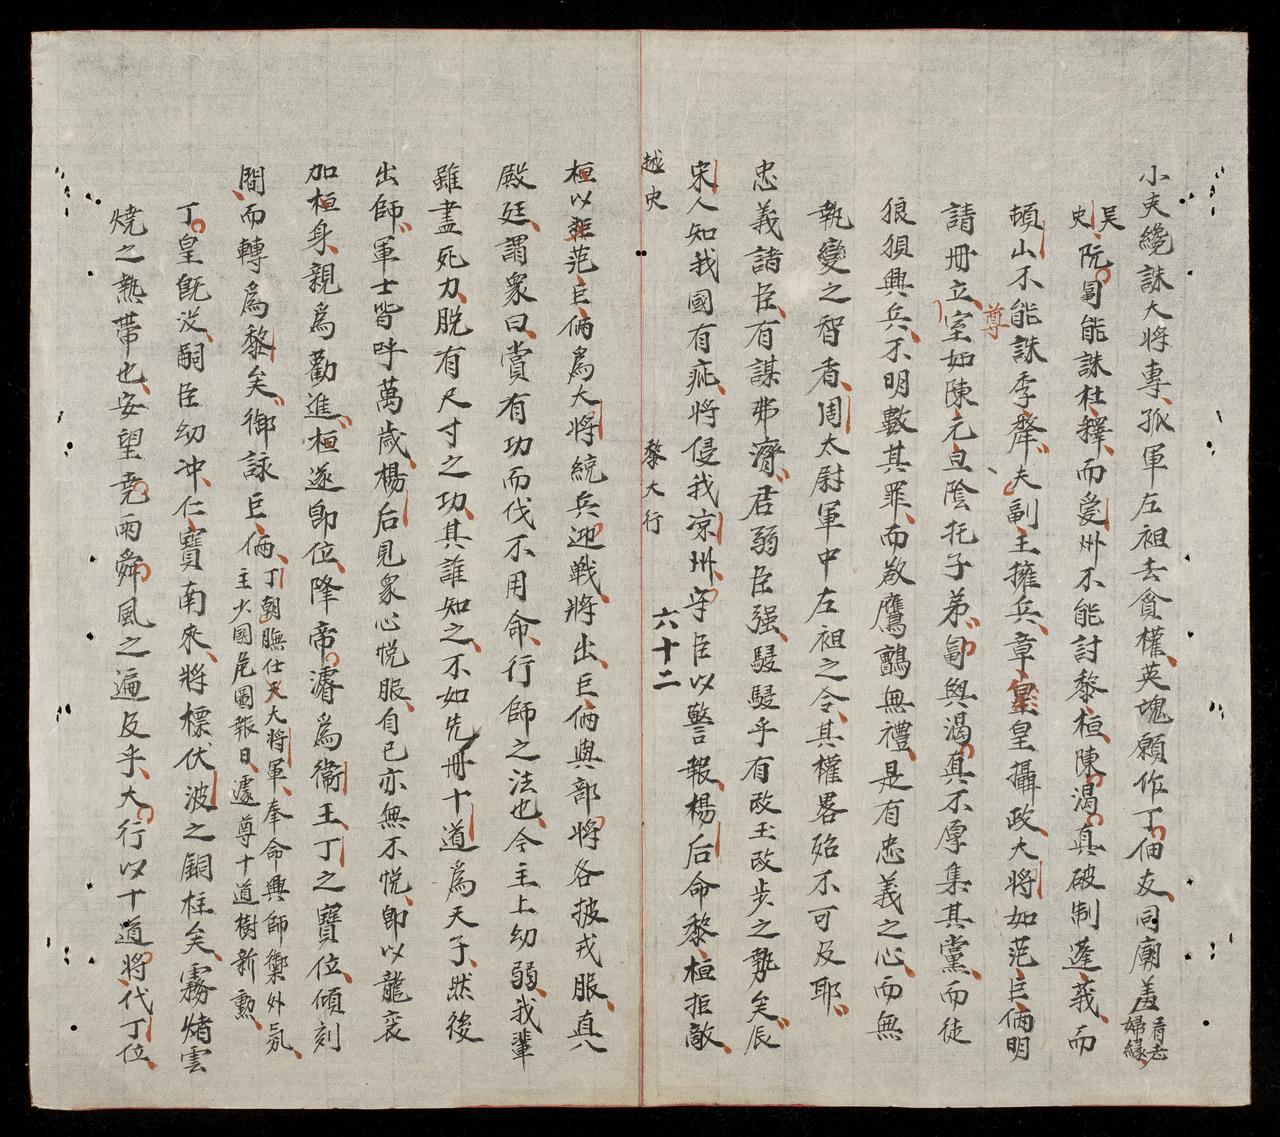 小吏纔誅大將專孤軍左袒去貪權英塊願作丁佃友同廟羞看老婦緣
吴史阮匐能誅杜釋而愛州不能討黎桓陳渴真破制蓬莪而
頓山不能誅季犛夫副王擁兵章皇皇攝政大將如范巨俩明
請冊立尊室如陳元旦陰托子弟匐與渴真不厚集其黨而徒
狼狽興兵不明數其罪而敢鷹鸇無禮是有忠義之心而無
執變之智者周太尉軍中左袒之令其權畧殆不可及耶
忠義諸臣有謀弗濟君弱臣强駸駸乎有改玉改步之勢矣辰
宋人知我國有疵將侵我凉州守臣以警報楊后命黎桓拒敵
越史 黎大行 六十二
桓以范巨俩爲大將統兵迎戰將出巨俩與部將各披戎服真入
殿廷謂衆曰賞有功而伐不用命行師之法也今主上幼弱我輩
雖盡死力脱有尺寸之功其誰知之不如先冊十道爲天子然後
出師軍士皆呼萬歲楊后見衆心悦服自已亦無不悦即以龍衮
加桓身親爲勸進桓遂即位降帝濬爲衞王丁之寶位傾刻
間而轉爲黎矣御詠巨俩丁朝膴仕大將軍奉命興師禦外氛
主少國危圖報日遽尊十道樹新勲
丁皇既没嗣臣幼冲仁寶南來將標伏波之銅柱矣霧煏雲
燒之熱帶也安望堯雨舜風之遍及乎大行以十道將代丁位